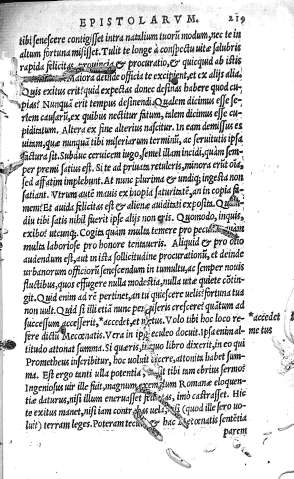 EPISTOLARVM. 219
tibi senescere contigisset intra natalium tuorũ modum, nec te in
altum fortuna misisset. Tulit te longè à conspectu vitæ salubris
rapida felicitas, provincia & procuratio, & quicquid ab istis
Maiora deinde officia te excipient, et ex alijs alia.
Quis exitus erit? quid expectas donec desinas habere quod cu-
pias? Nunquã erit tempus desinendi. Qualem dicimus esse se-
riem causarũ, ex quibus nectitur fatum, talem dicimus esse cu-
piditatum. Altera ex fine alterius nascitur. In eam demissus es
uitam, quæ nunquã tibi miseriarum terminũ, ac seruitutis ipsa
factura sit. Subduc ceruicem iugo semel illam incidi, quàm sem-
per premi satius est. Si te ad priuata retuleris, minora erũt oĩa,
sed affatim implebunt. At nunc plurima & undiq; ingesta non
satiant. Vtrum autẽ mauis ex inopia saturitatẽ, an in copia fa-
mem? Et auida felicitas est & alienæ auiditati exposita.
diu tibi satis nihil fuerit ipse alijs non eris. Quomodo, inquis,
exibo? utcunq;. Cogita quàm multa temere pro pecunia
multa laboriose pro honore tentaueris. Aliquid & pro otio
audendum est, aut in ista sollicitudine procurationũ, et deinde
urbanorum officiorũ senescendum in tumultu, ac semper nouis
fluctibus, quos effugere nulla modestia, nulla uitæ quiete cõtin-
git. Quid enim ad rẽ pertinet, an tu quiescere uelis? fortuna tua
non uult. Quid si illi etiã nunc permiseris crescere? quãtum ad
successum accesserit, *accedet, et metus. Volo tibi hoc loco re- *accedet
ferre dictũ Mecœnatis. Vera in ipso eculeo docuit. Ipsa enim al- metus
titudo attonat summa. Si quæris, in quo libro dixerit, in eo qui
Prometheus inscribitur, hoc uoluit dicere, attonita habet sum-
ma. Est ergo tanti ulla potentia, tibi tam ebrius sermo?
Ingeniosus uir ille fuit, magnum exemplum Romanæ eloquen-
tiæ daturus, nisi illum eneruasset felicitas, imò castrasset. Hic
te exitus manet, nisi iam contrahes uela, nisi (quod ille sero uo-
luit) terram leges. Poteram tecum & hac Mecœnatis sententia
parem